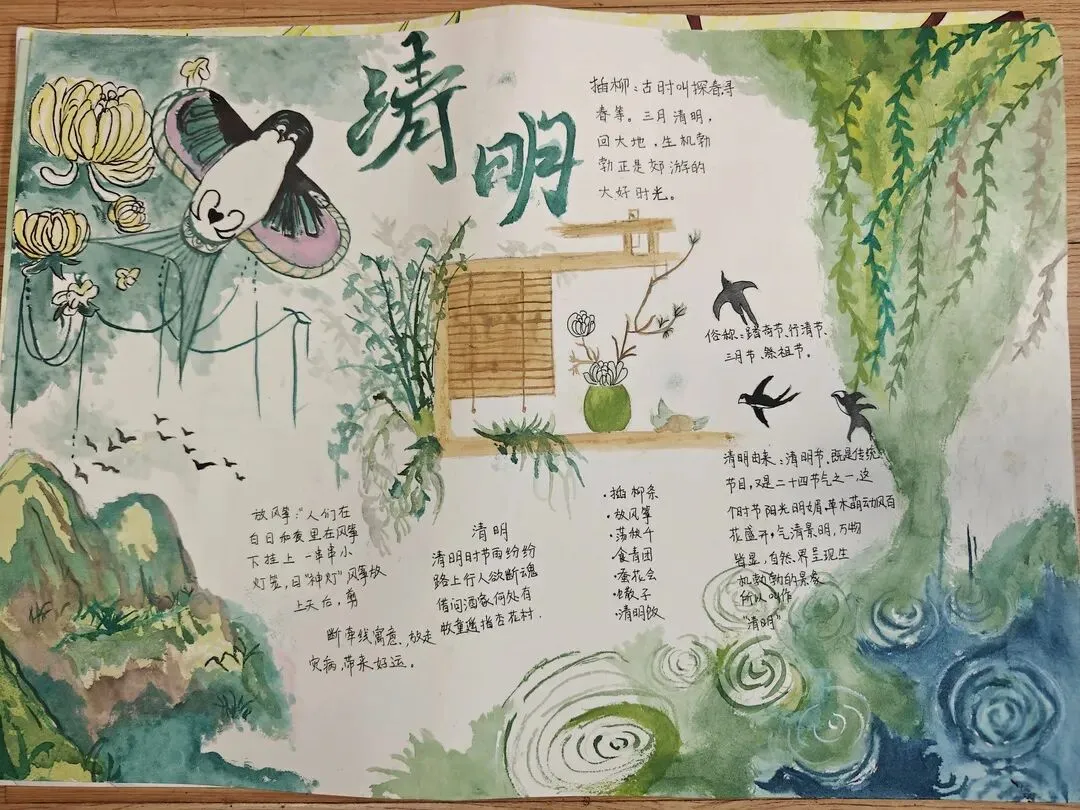 清明
插柳：古时叫探春寻
春等。三月清明，
回大地，生机勃
勃正是郊游的
大好时光。
俗称：踏奇节、行清节、
三月节、祭祖节。
清明由来：清明节，既是传统
节目，又是二十四节气之一，这
个时节阳光明媚，草木萌动，百
花盛开，气清景明，万物
皆显，自然界呈现生
机勃勃的景象
所以叫作
"清明"
放风筝："人们在
白日和夜里在风筝
下挂上一串串小
灯笼，曰"神灯"风筝放
上天后，剪
断牵线寓意，放走
灾病，带来好运。
清明
清明时节雨纷纷
路上行人欲断魂
借问酒家何处有
牧童遥指杏花村.
·插柳条
·放风筝
·荡秋千
·食青团
·蚕花会
·馓子
·清明饭